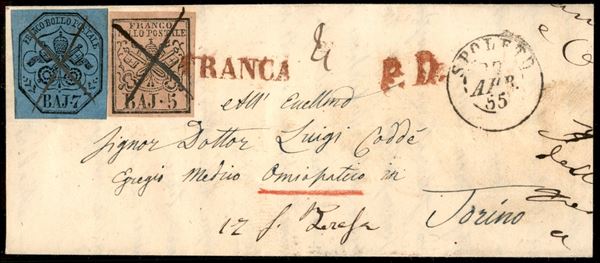 FRANCO BOLLO POSTALE
BAJ-7
FRANCO
BOLLO POSTALE
BAJ-5
FRANCA
P.D.
SPOLETO
27
APR
55
All' Eccellmo
Signor Dottor Luigi Coddé
Egregio Medico Omiopatico in
12 S. Teresa
Torino